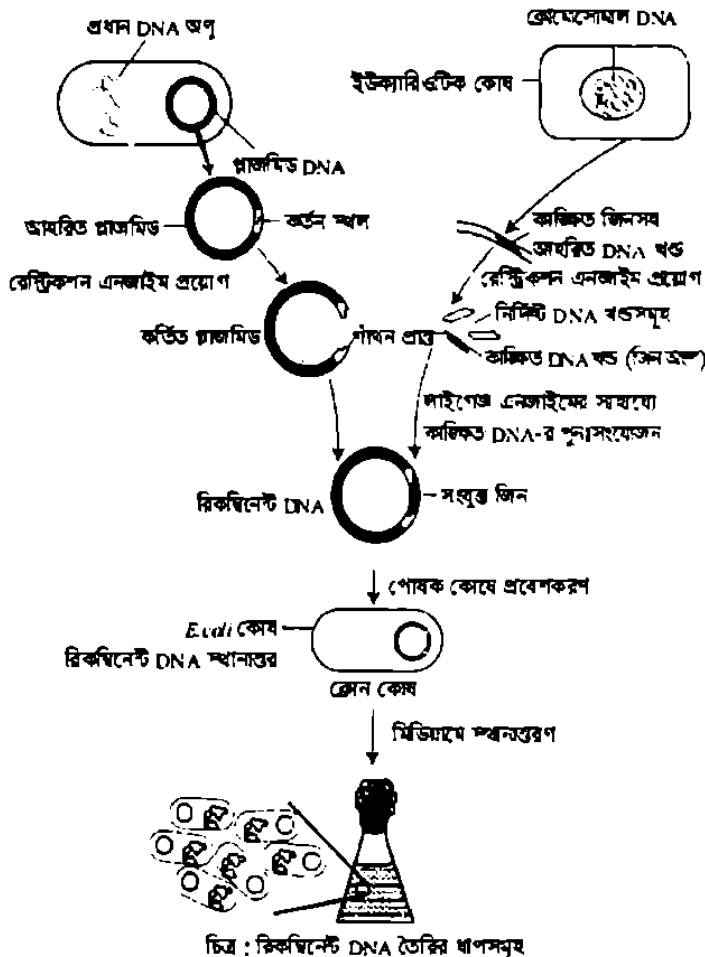 প্রধান DNA অণু
ক্রোমোসোমাল DNA
ইউক্যারিওটিক কোষ
প্লাজমিড DNA
আহরিত প্লাজমিড
কর্তন স্থল
কাঙ্ক্ষিত জিনসহ
আহরিত DNA খন্ড
রেস্ট্রিকশন এনজাইম প্রয়োগ
রেস্ট্রিকশন এনজাইম প্রয়োগ
নির্দিষ্ট DNA খন্ডসমূহ
কর্তিত প্লাজমিড
প্রান্ত
কাঙ্ক্ষিত DNA খন্ড (জিন অংশ)
লাইগেজ এনজাইমের সাহায্যে
কাঙ্ক্ষিত DNA-র পুনঃসংযোজন
রিকম্বিনেন্ট DNA
সংযুক্ত জিন
পোষক কোষে প্রবেশকরণ
E.coli কোষ
রিকম্বিনেন্ট DNA স্থানান্তর
ক্লোন কোষ
মিডিয়ামে স্থানান্তরণ
চিত্র : রিকম্বিনেন্ট DNA তৈরির ধাপসমূহ